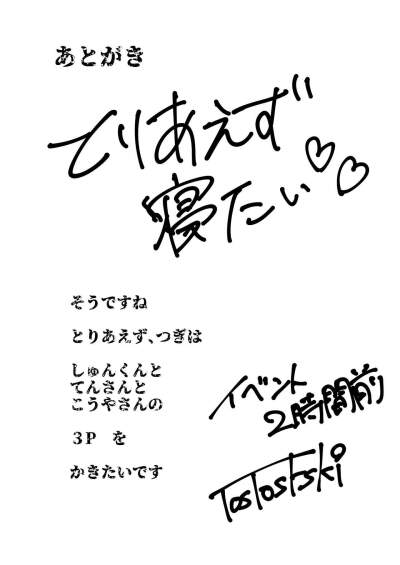 あとがき
とりあえず
寝たい♡♡
そうですね
とりあえず、つぎは
しゅんくんと
てんさんと
こうやさんの
３Ｐ　を
かきたいです
イベント
2時間前
Tostostski